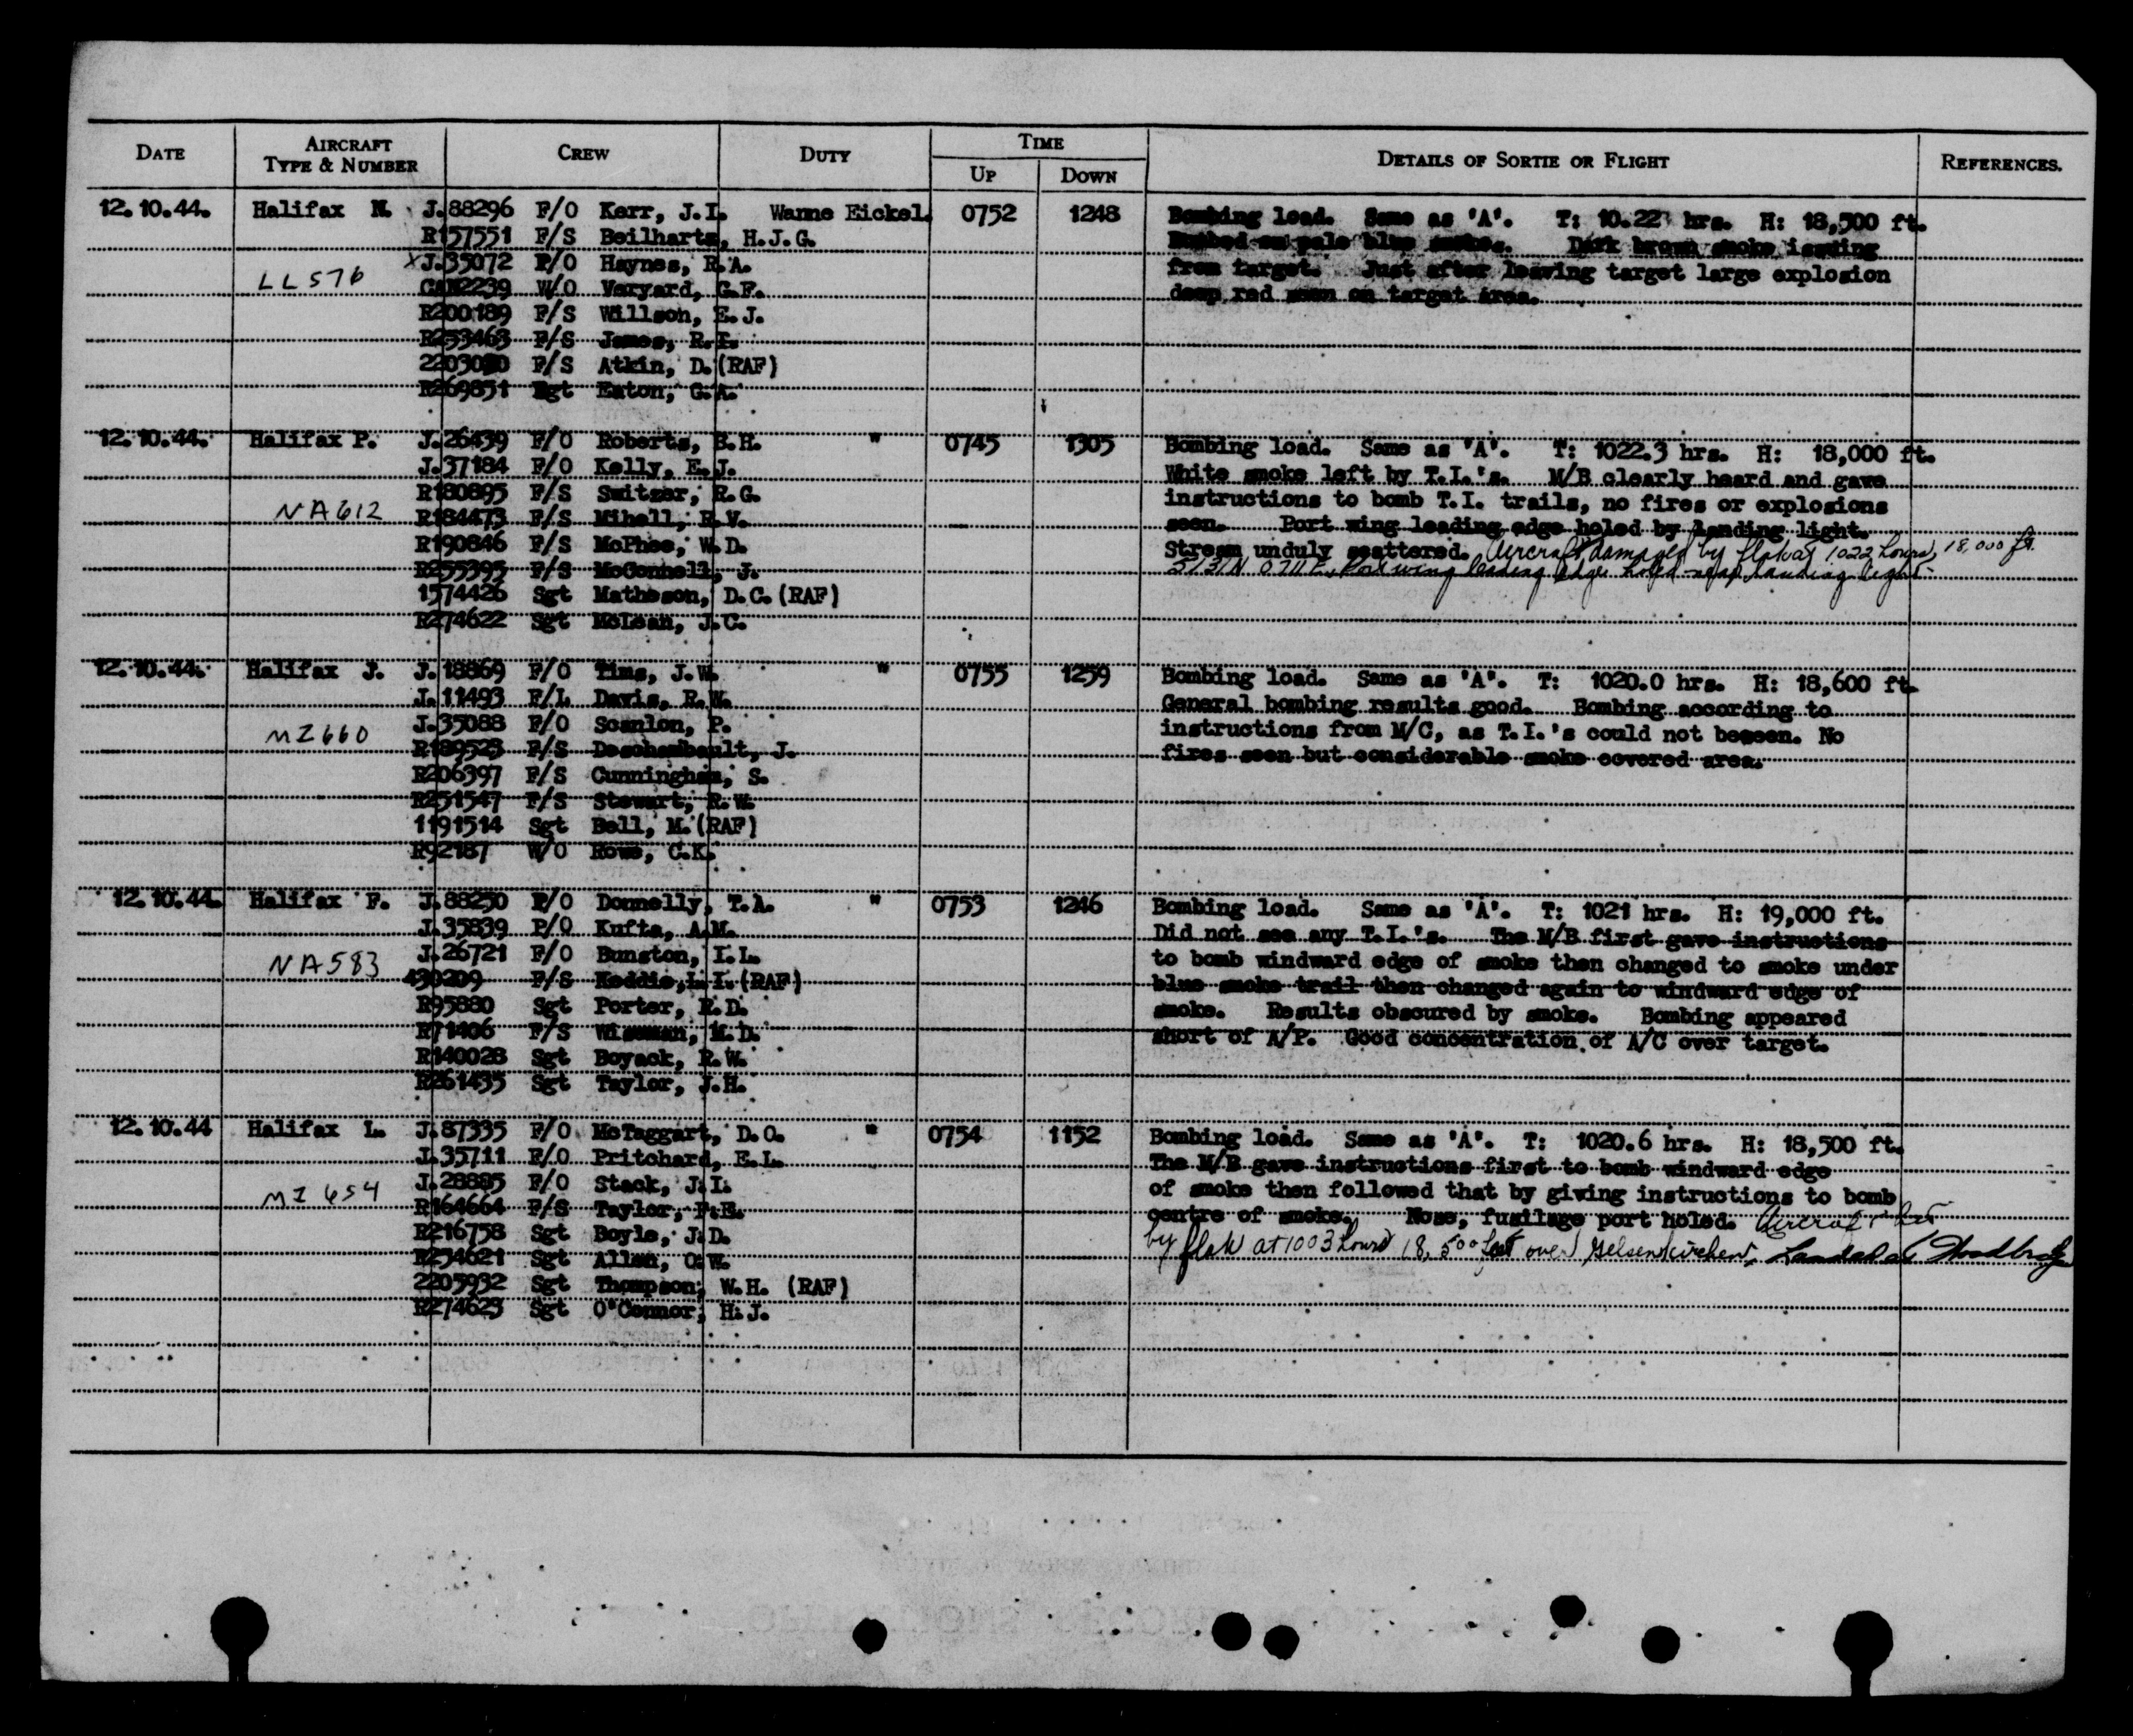 DATE AIRCRAFT TYPE & NUMBER CREW DUTY TIME UP DOWN DETAILS OF SORTIE OR FLIGHT REFERENCES.
12.10.44. Halifax N. J.88296 F/O Kerr, J.I. Wanne Eickel. 0752 1248 Bombing load. Same as 'A'. T: 10.22 hrs. H: 18,500 ft.
R157551 F/S Beilhartz, H.J.G. Bombed on pale blue smoke. Dark brown smoke issuing
LL576 XJ.35072 F/O Haynes, R.A. from target. Just after leaving target large explosion
CAN2239 W/O Varyard, G.F. deep red seen on target area.
R200189 F/S Willson, E.J.
R253463 F/S James, R.I.
F/S Atkin, D. (RAF)
R269851 Sgt Eaton, G.A.
12.10.44. Halifax P. J.26439 F/O Roberts, E.H. " 0745 1305 Bombing load. Same as 'A'. T: 1022.3 hrs. H: 18,000 ft.
J.37184 F/O Kelly, E.J. White smoke left by T.I.'s. M/B clearly heard and gave
R180895 F/S Switzer, R.G. instructions to bomb T.I. trails, no fires or explosions
NA612 R184473 F/S Mihell, R.V. seen. Port wing leading edge holed by landing light.
R190846 F/S McPhee, W.D. Stream unduly scattered. Aircraft damaged by flak at 1022 hours, 18,000 ft.
R255395 F/S McConnell, J. 5131N 0711E, Port wing leading edge holed near landing light.
1574426 Sgt Matheson, D.C. (RAF)
R274622 Sgt McLean, J.C.
12.10.44. Halifax J. J.18869 F/O Tims, J.W. " 0755 1259 Bombing load. Same as 'A'. T: 1020.0 hrs. H: 18,600 ft.
J.11493 F/L Davis, R.W. General bombing results good. Bombing according to
MZ660 J.35088 F/O Scanlon, P. instructions from M/C, as T.I.'s could not beseen. No
R189523 F/S Deschambault, J. fires seen but considerable smoke covered area.
R206397 F/S Cunningham, S.
R251547 F/S Stewart, R.W.
1191514 Sgt Bell, M. (RAF)
R92187 W/O Rowe, C.K.
12.10.44. Halifax F. J.88250 P/O Donnelly, T.A. " 0753 1246 Bombing load. Same as 'A'. T: 1021 hrs. H: 19,000 ft.
J.35839 P/O Kufta, A.M. Did not see any T.I.'s. The M/B first gave instructions
J.26721 F/O Bunston, I.L. to bomb windward edge of smoke then changed to smoke under
NA583 430209 F/S Keddie, L.I. (RAF) blue smoke trail then changed again to windward edge of
R95880 Sgt Porter, R.D. smoke. Results obscured by smoke. Bombing appeared
R71406 F/S Wiseman, M.D. short of A/P. Good concentration of A/C over target.
R140028 Sgt Boyack, R.W.
R261435 Sgt Taylor, J.H.
12.10.44 Halifax L. J.87335 F/O McTaggart, D.O. " 0754 1152 Bombing load. Same as 'A'. T: 1020.6 hrs. H: 18,500 ft.
J.35711 F/O Pritchard, E.L. The M/B gave instructions first to bomb windward edge
MZ654 J.28885 F/O Stack, J.I. of smoke then followed that by giving instructions to bomb
R164664 F/S Taylor, F.E. centre of smoke. Nose, fusilage port holed. Aircraft hit
R216758 Sgt Boyle, J.D. by flak at 1003 hours 18,500 feet over Gelsenkirchen. Landed at Woodbridge
R254621 Sgt Allen, O.W.
2205932 Sgt Thompson, W.H. (RAF)
R274623 Sgt O'Connor, H.J.